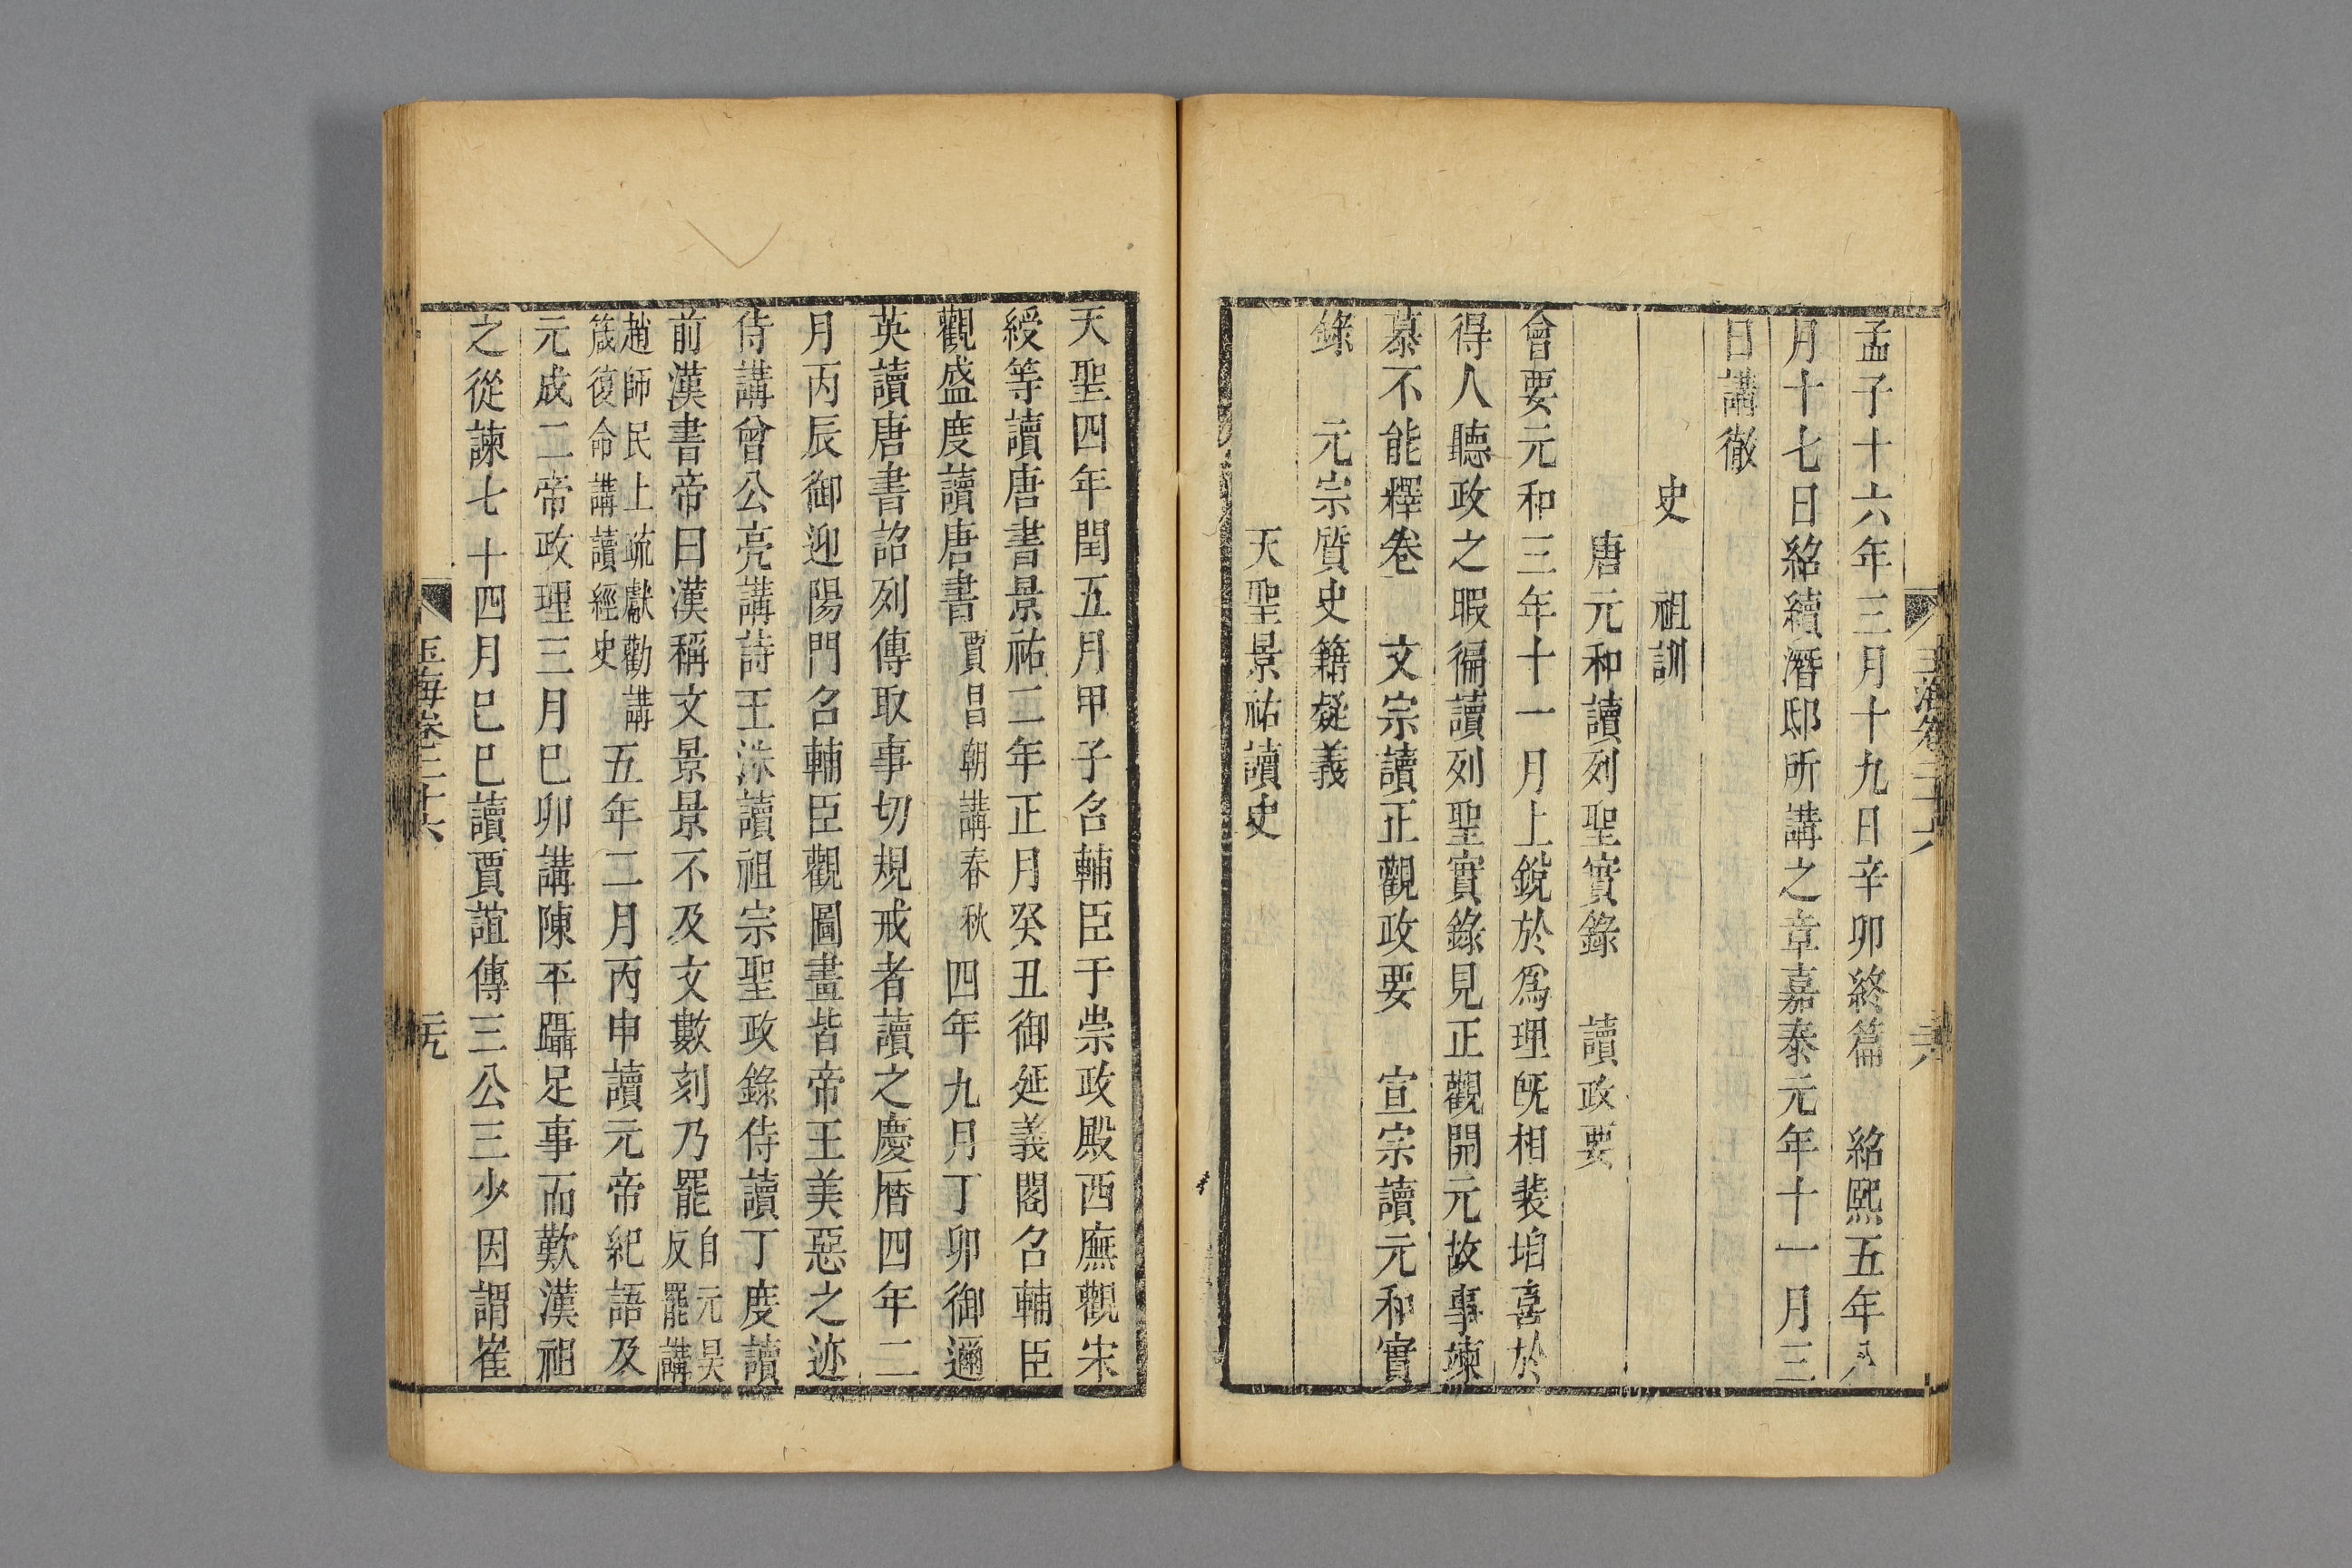 孟子十六年三月十九日辛卯終篇 紹熙五年八
月十七日紹續潛邸所講之章嘉泰元年十一月三
日講徹
史 祖訓
唐元和讀列聖實錄 讀政要
會要元和三年十一月上銳於爲理旣相裴垍喜於
得人聽政之暇徧讀列聖實錄見正觀開元故事竦
慕不能釋卷 文宗讀正觀政要 宣宗讀元和實
錄 元宗質史籍疑義
天聖景祐讀史
玉海卷二十六
天聖四年閏五月甲子召輔臣于崇政殿西廡觀宋
綬等讀唐書景祐二年正月癸丑御延義閣召輔臣
觀盛度讀唐書賈昌朝講春秋 四年九月丁卯御邇
英讀唐書詔列傳取事切規戒者讀之慶曆四年二
月丙辰御迎陽門召輔臣觀圖畫皆帝王美惡之迹
侍講曾公亮講詩王洙讀祖宗聖政錄侍讀丁度讀
前漢書帝曰漢稱文景景不及文數刻乃罷自元昊
反罷講
趙師民上疏獻勸講
箴復命講讀經史五年二月丙申讀元帝紀語及
元成二帝政理三月巳卯講陳平躡足事而歎漢祖
之從諫七十四月巳巳讀賈誼傳三公三少因謂崔
玉海卷二十六